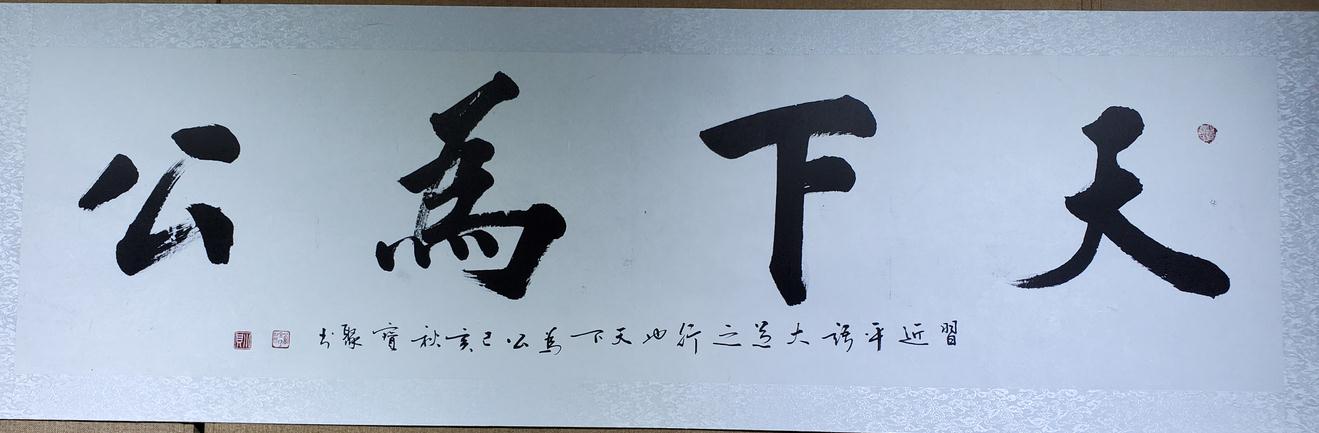 天下為公
習近平語大道之行也天下為公己亥秋寶聚书